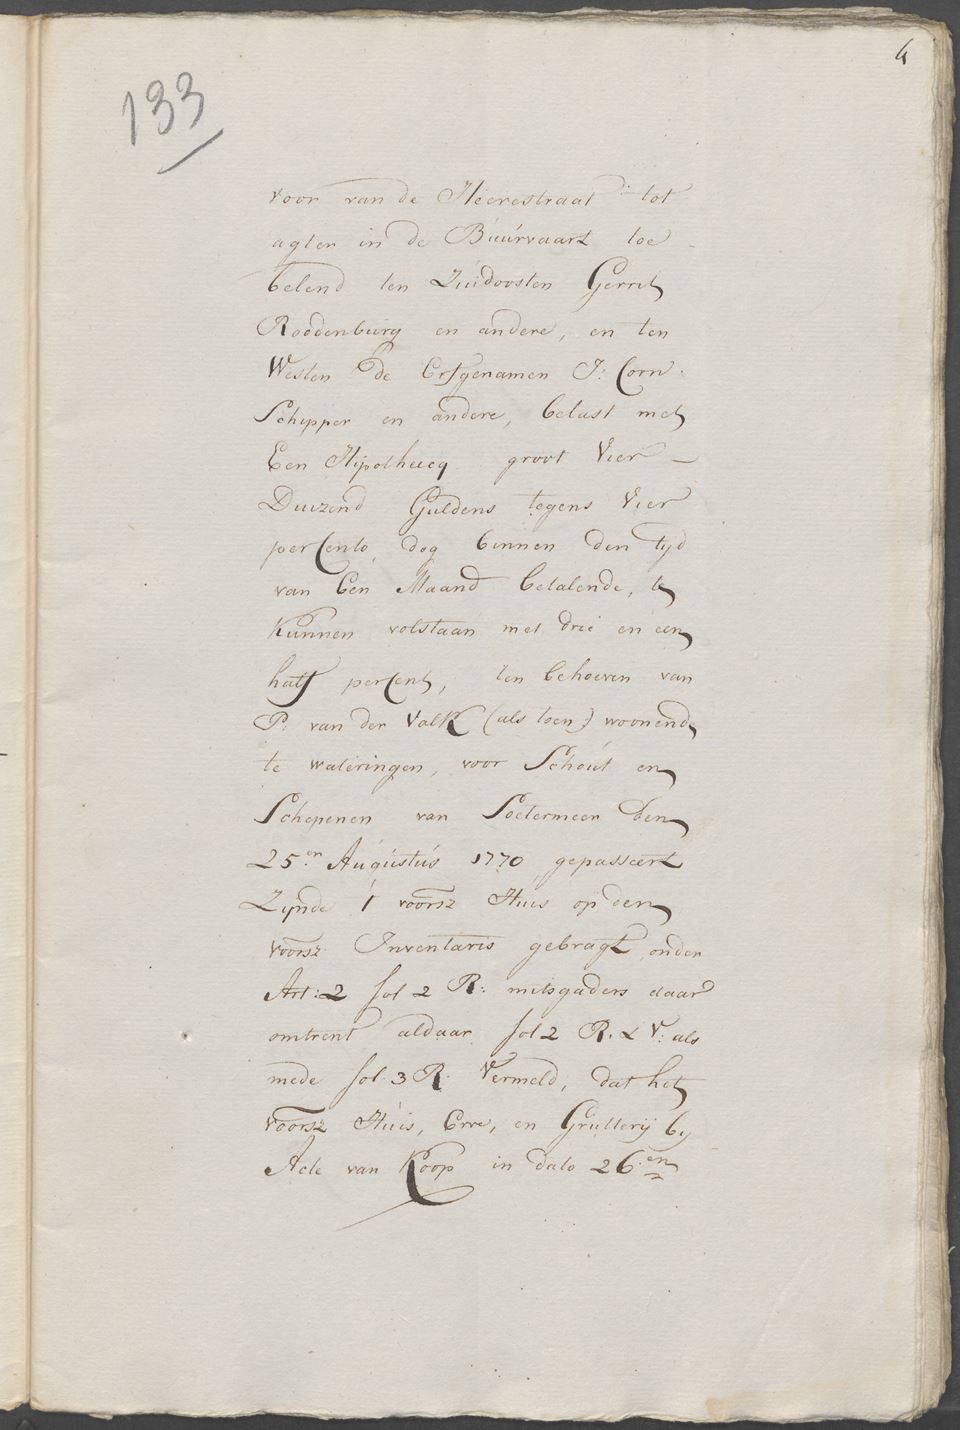 4
133
voor van de Heerestraat tot
agter in de Buúrvaart toe
belend ten Zúidoosten Gerrit
Roodenbúrg en andere, en ten
Westen de Erfgenamen J: Corn:
Schipper en andere, belast met
Een Hijpotheecq groot Vier
Duizend Guldens tegens Vier
perCento, dog binnen den tyd
van Een Maand betalende, te
Kúnnen volstaan met drie en een
half perCent, ten behoeven van
P: van der Valk (als toen) woonend
te wateringen, voor Schoút en
Schepenen van Soetermeer den
25.en Aúgústús 1770 gepasseert
Zijnde 't voorsz Huis op den
voorsz. Inventaris gebragt onder
Art: 2 fol 2 R: mitsgaders daar
omtrent aldaar fol 2 R. & V: als
mede fol. 3 R. Vermeld, dat het
voorsz Húis, Erve, en Grutterij by
Acte van Koop in dato 26.en